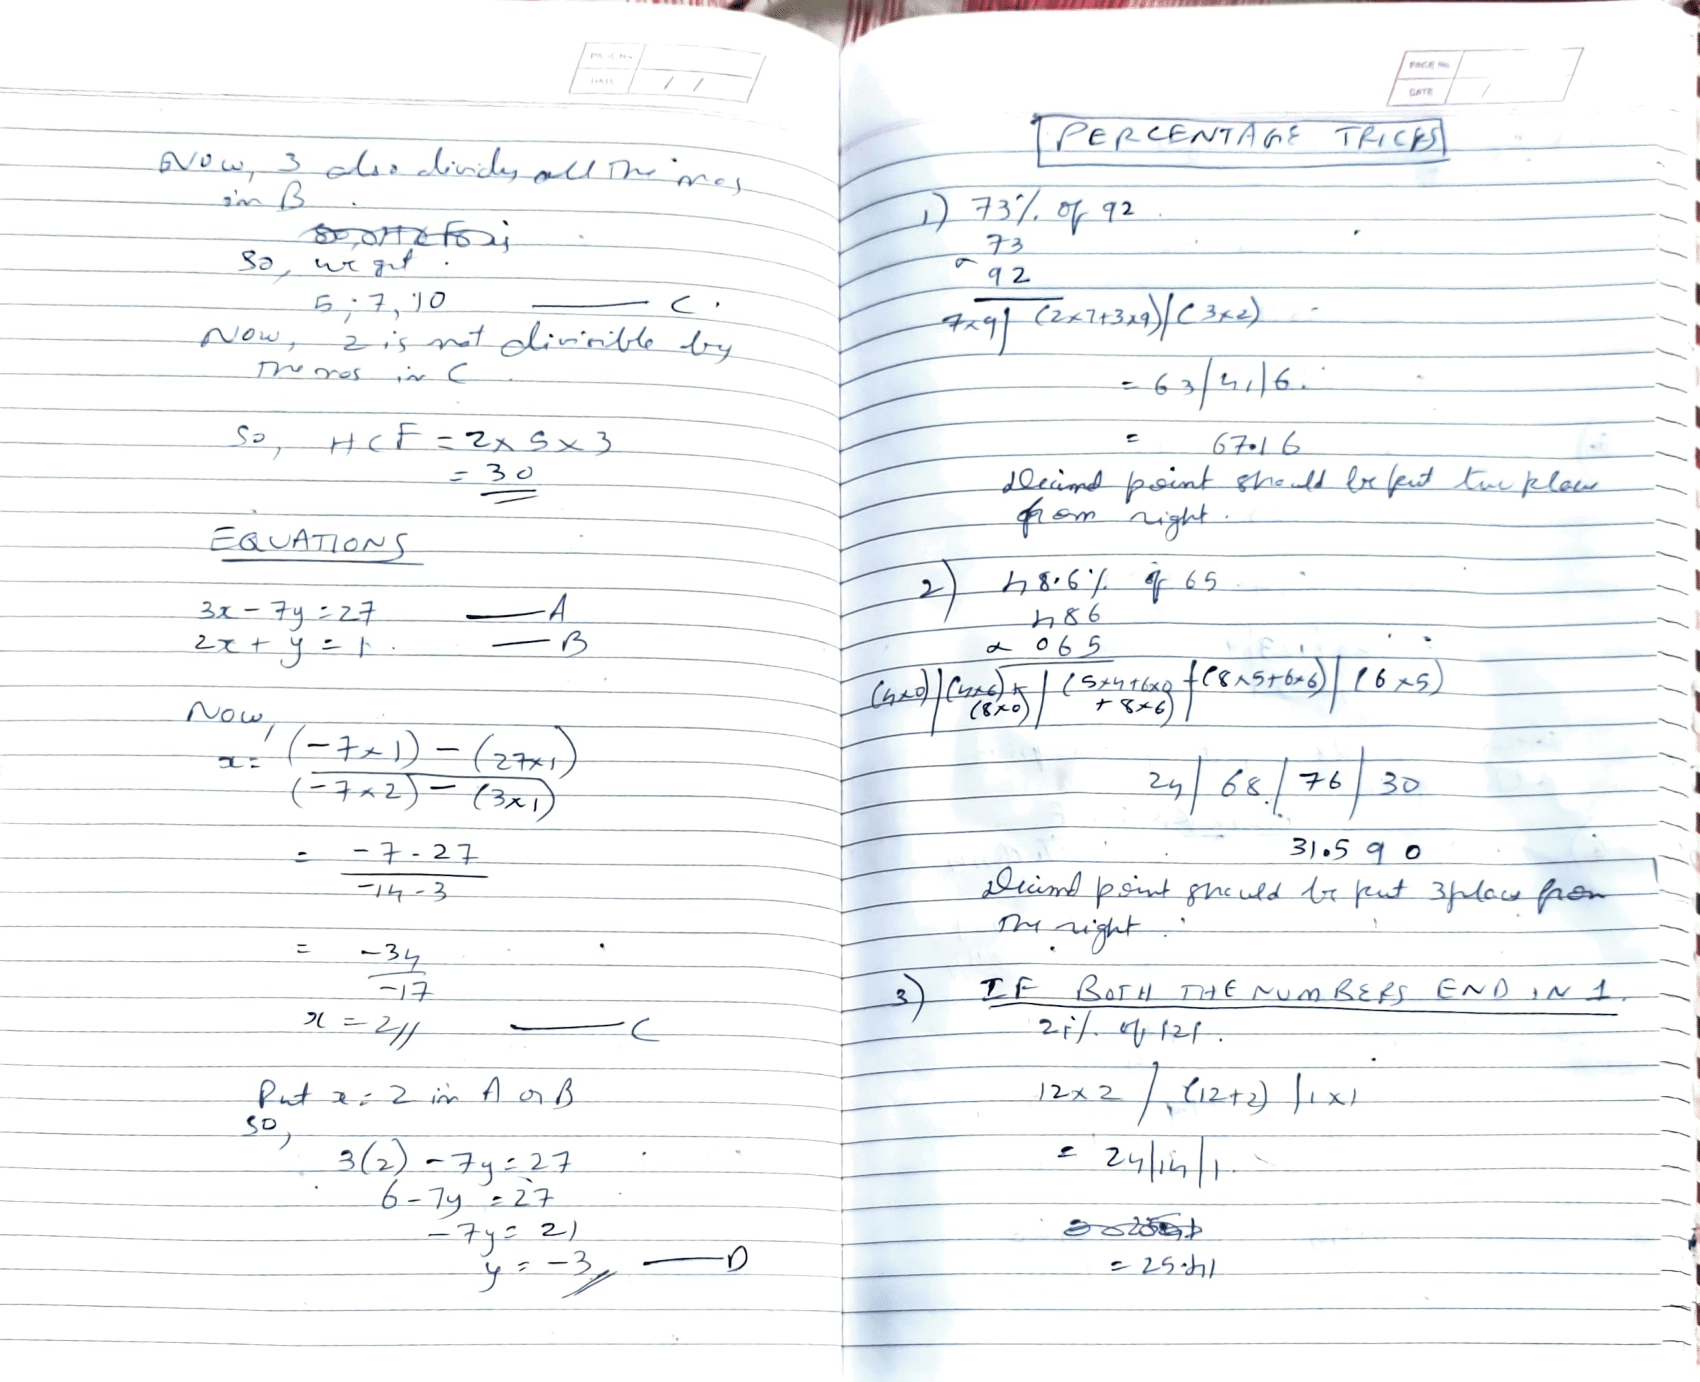 PAGE No.
DATE / /
Now, 3 also divides all the nos
in B
So, we get
5, 7, 10 — C
Now, 2 is not divisible by
the nos in C
So, HCF = 2 x 5 x 3
= 30
EQUATIONS
3x - 7y = 27 — A
2x + y = 1. — B
Now,
x = (-7x1) - (27x1)
(-7x2) - (3x1)
= -7-27
-14-3
= -34
-17
x = 2// — C
Put x = 2 in A or B
so,
3(2) - 7y = 27
6 - 7y = 27
-7y = 21
y = -3// — D
PAGE No.
DATE /
PERCENTAGE TRICKS
1) 73% of 92
73
x 92
7x9 / (2x7+3x9) / (3x2)
= 63/41/6.
= 67.16
Decimal point should be put two places
from right.
2) 48.6% of 65
486
x 065
(4x0) / (4x6)+ / (5x4+6x0 / (8x5+6x6) / (6x5)
(8x0) + 8x6)
24 / 68 / 76 / 30
31.590
Decimal point should be put 3 places from
the right.
3) IF BOTH THE NUMBERS END IN 1.
21% of 121.
12x2 / (12+2) / 1x1
= 24/14/1.
= 25.41